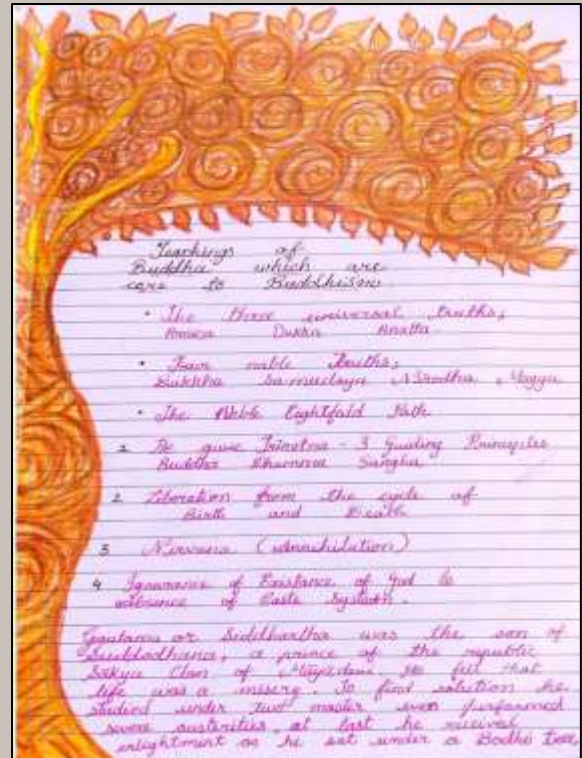 Teachings of
Buddha which are
core to Buddhism
• The three universal truths;
Annica Dukka Anatta
• Four noble Truths;
Dukkha Samudaya Nirodha, Magga
• The Noble Eightfold Path
1 He gave Triratna - 3 Guiding Principles
Buddha Dhamma Sangha
2 Liberation from the cycle of
Birth and Death
3 Nirvana (Annihilution)
4 Ignorance of Existance of God &
adbsence of Caste System.
Gautama or Siddhartha was the son of
Suddodhana, a prince of the republic
Sakya Clan of Mayadevi. He felt that
life was a misery. To find solution he
studied under two master even performed
severe austerities. at last he recieved
enlightment as he sat under a Bodhi tree